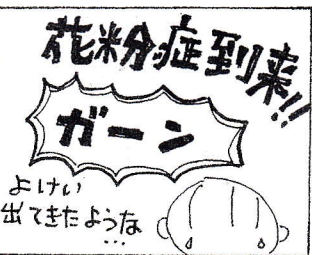 花粉症到来!!
ガーン
よけい
出てきたような
...